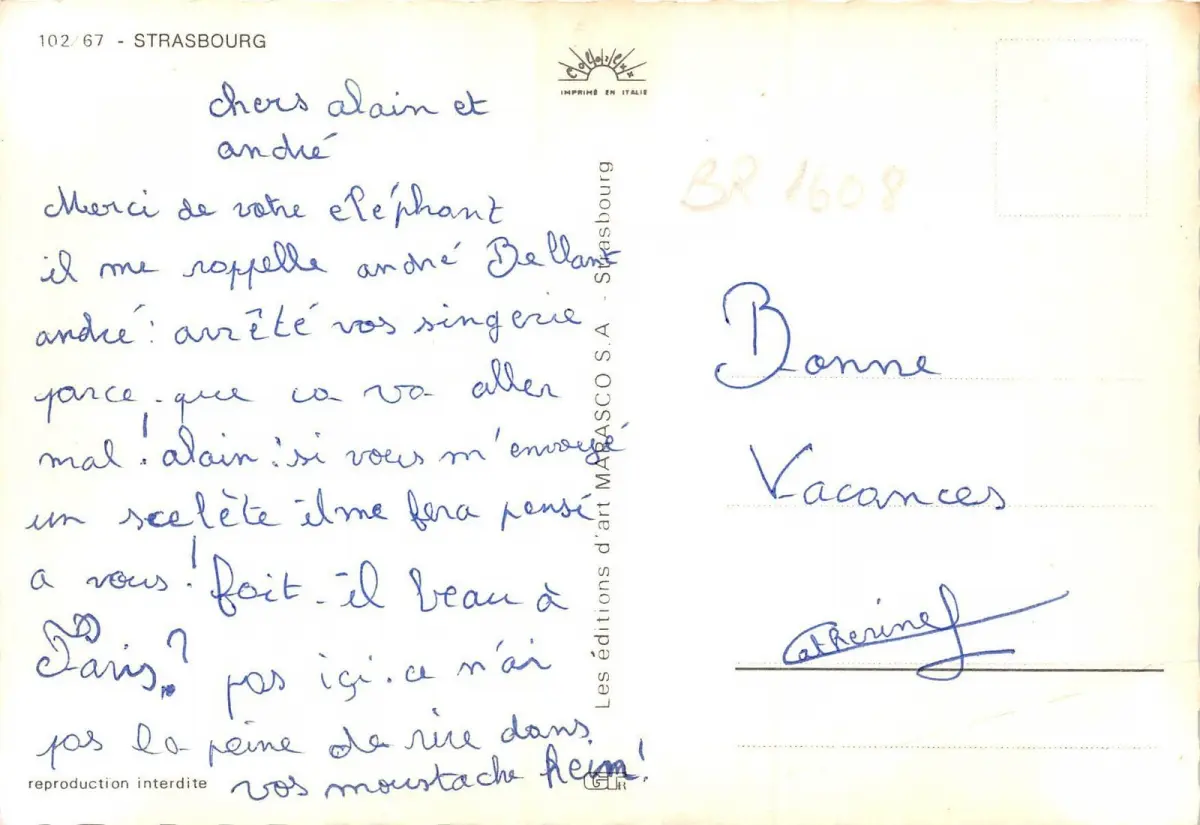 102/67 - STRASBOURG
chers alain et
andré
Merci de votre eléphant
il me rappelle andné Bellant
andié: arrêté vos singerie
parce-que ca va aller
mal! alain: si vous m'envoyé
un scelète il me fera pensé
a vous! fait-il beau à
Paris? pas içi. ce n'ai
pas la peine de rire dans
vos moustache heim!
reproduction interdite
IMPRIMÉ EN ITALIE
Les éditions d'art MARASCO S.A. - Strasbourg
BR 1608
Bonne
Vacances
Catherine